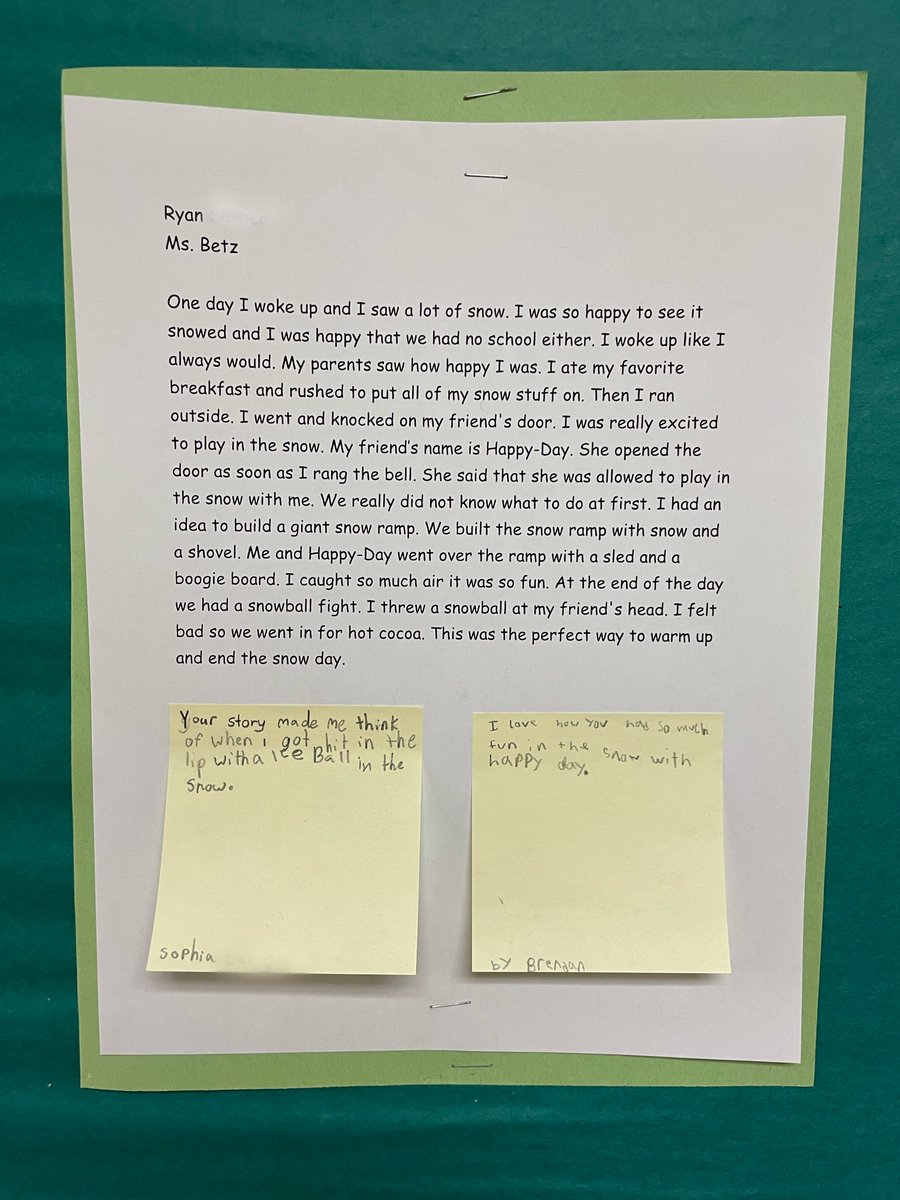 Ryan
Ms. Betz
One day I woke up and I saw a lot of snow. I was so happy to see it
snowed and I was happy that we had no school either. I woke up like I
always would. My parents saw how happy I was. I ate my favorite
breakfast and rushed to put all of my snow stuff on. Then I ran
outside. I went and knocked on my friend's door. I was really excited
to play in the snow. My friend's name is Happy-Day. She opened the
door as soon as I rang the bell. She said that she was allowed to play in
the snow with me. We really did not know what to do at first. I had an
idea to build a giant snow ramp. We built the snow ramp with snow and
a shovel. Me and Happy-Day went over the ramp with a sled and a
boogie board. I caught so much air it was so fun. At the end of the day
we had a snowball fight. I threw a snowball at my friend's head. I felt
bad so we went in for hot cocoa. This was the perfect way to warm up
and end the snow day.
Your story made me think
of when i got hit in the
lip with a Ice Ball in the
Snow.
Sophia
I love how you had so much
fun in the snow with
happy day.
by Brendan